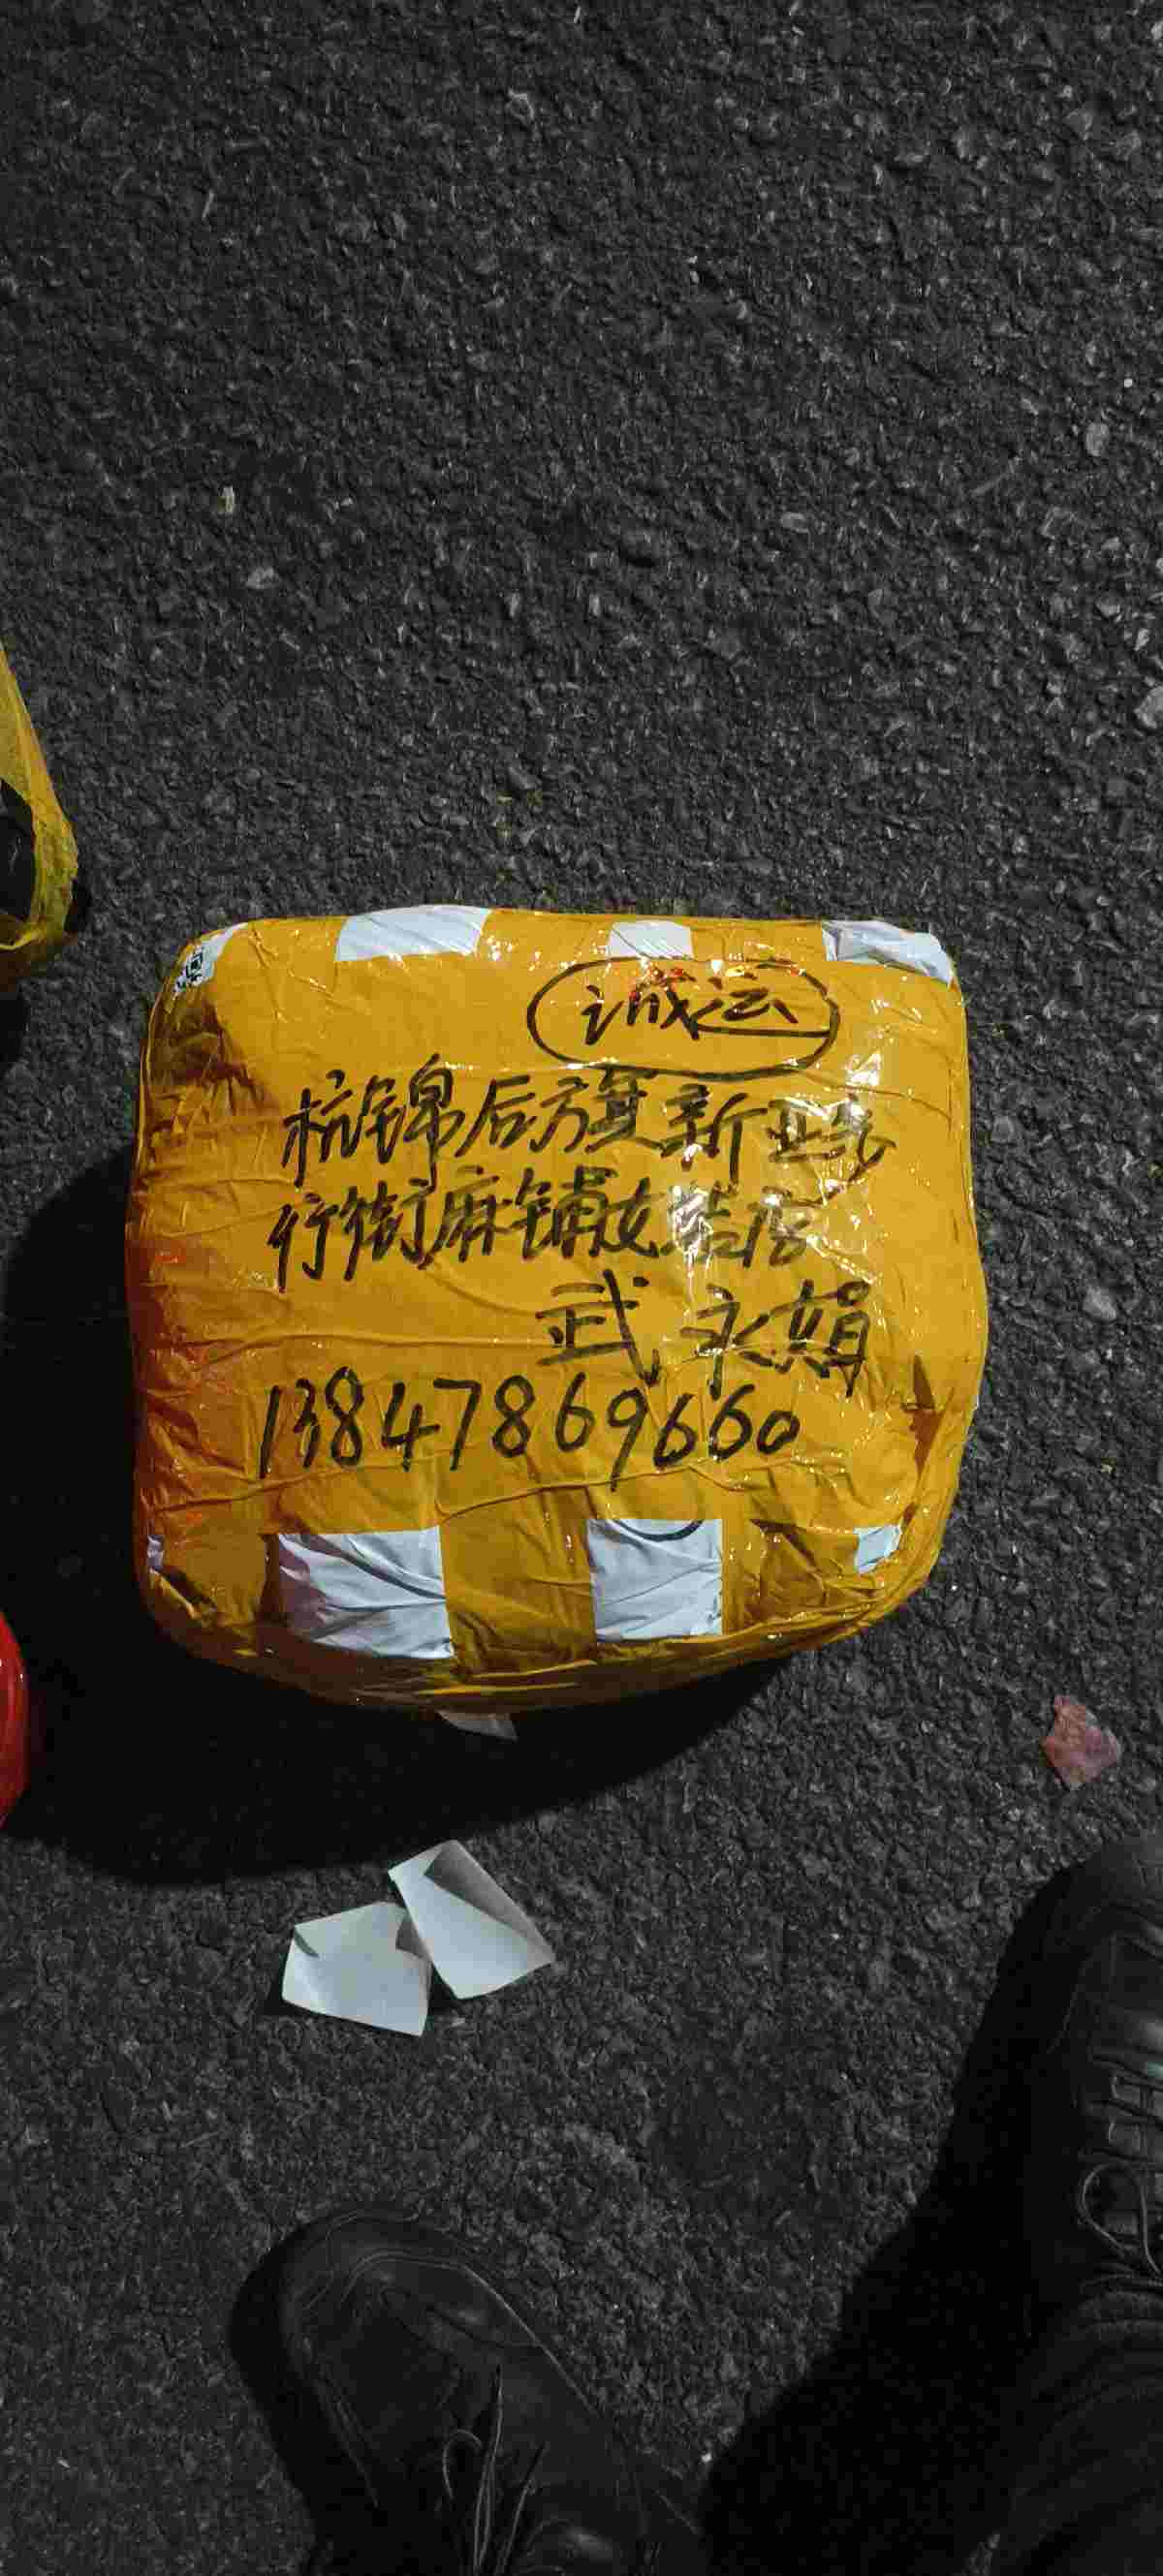 诚运
杭锦后旗新亚步
行街麻铺女装店
武永娟
13847869660